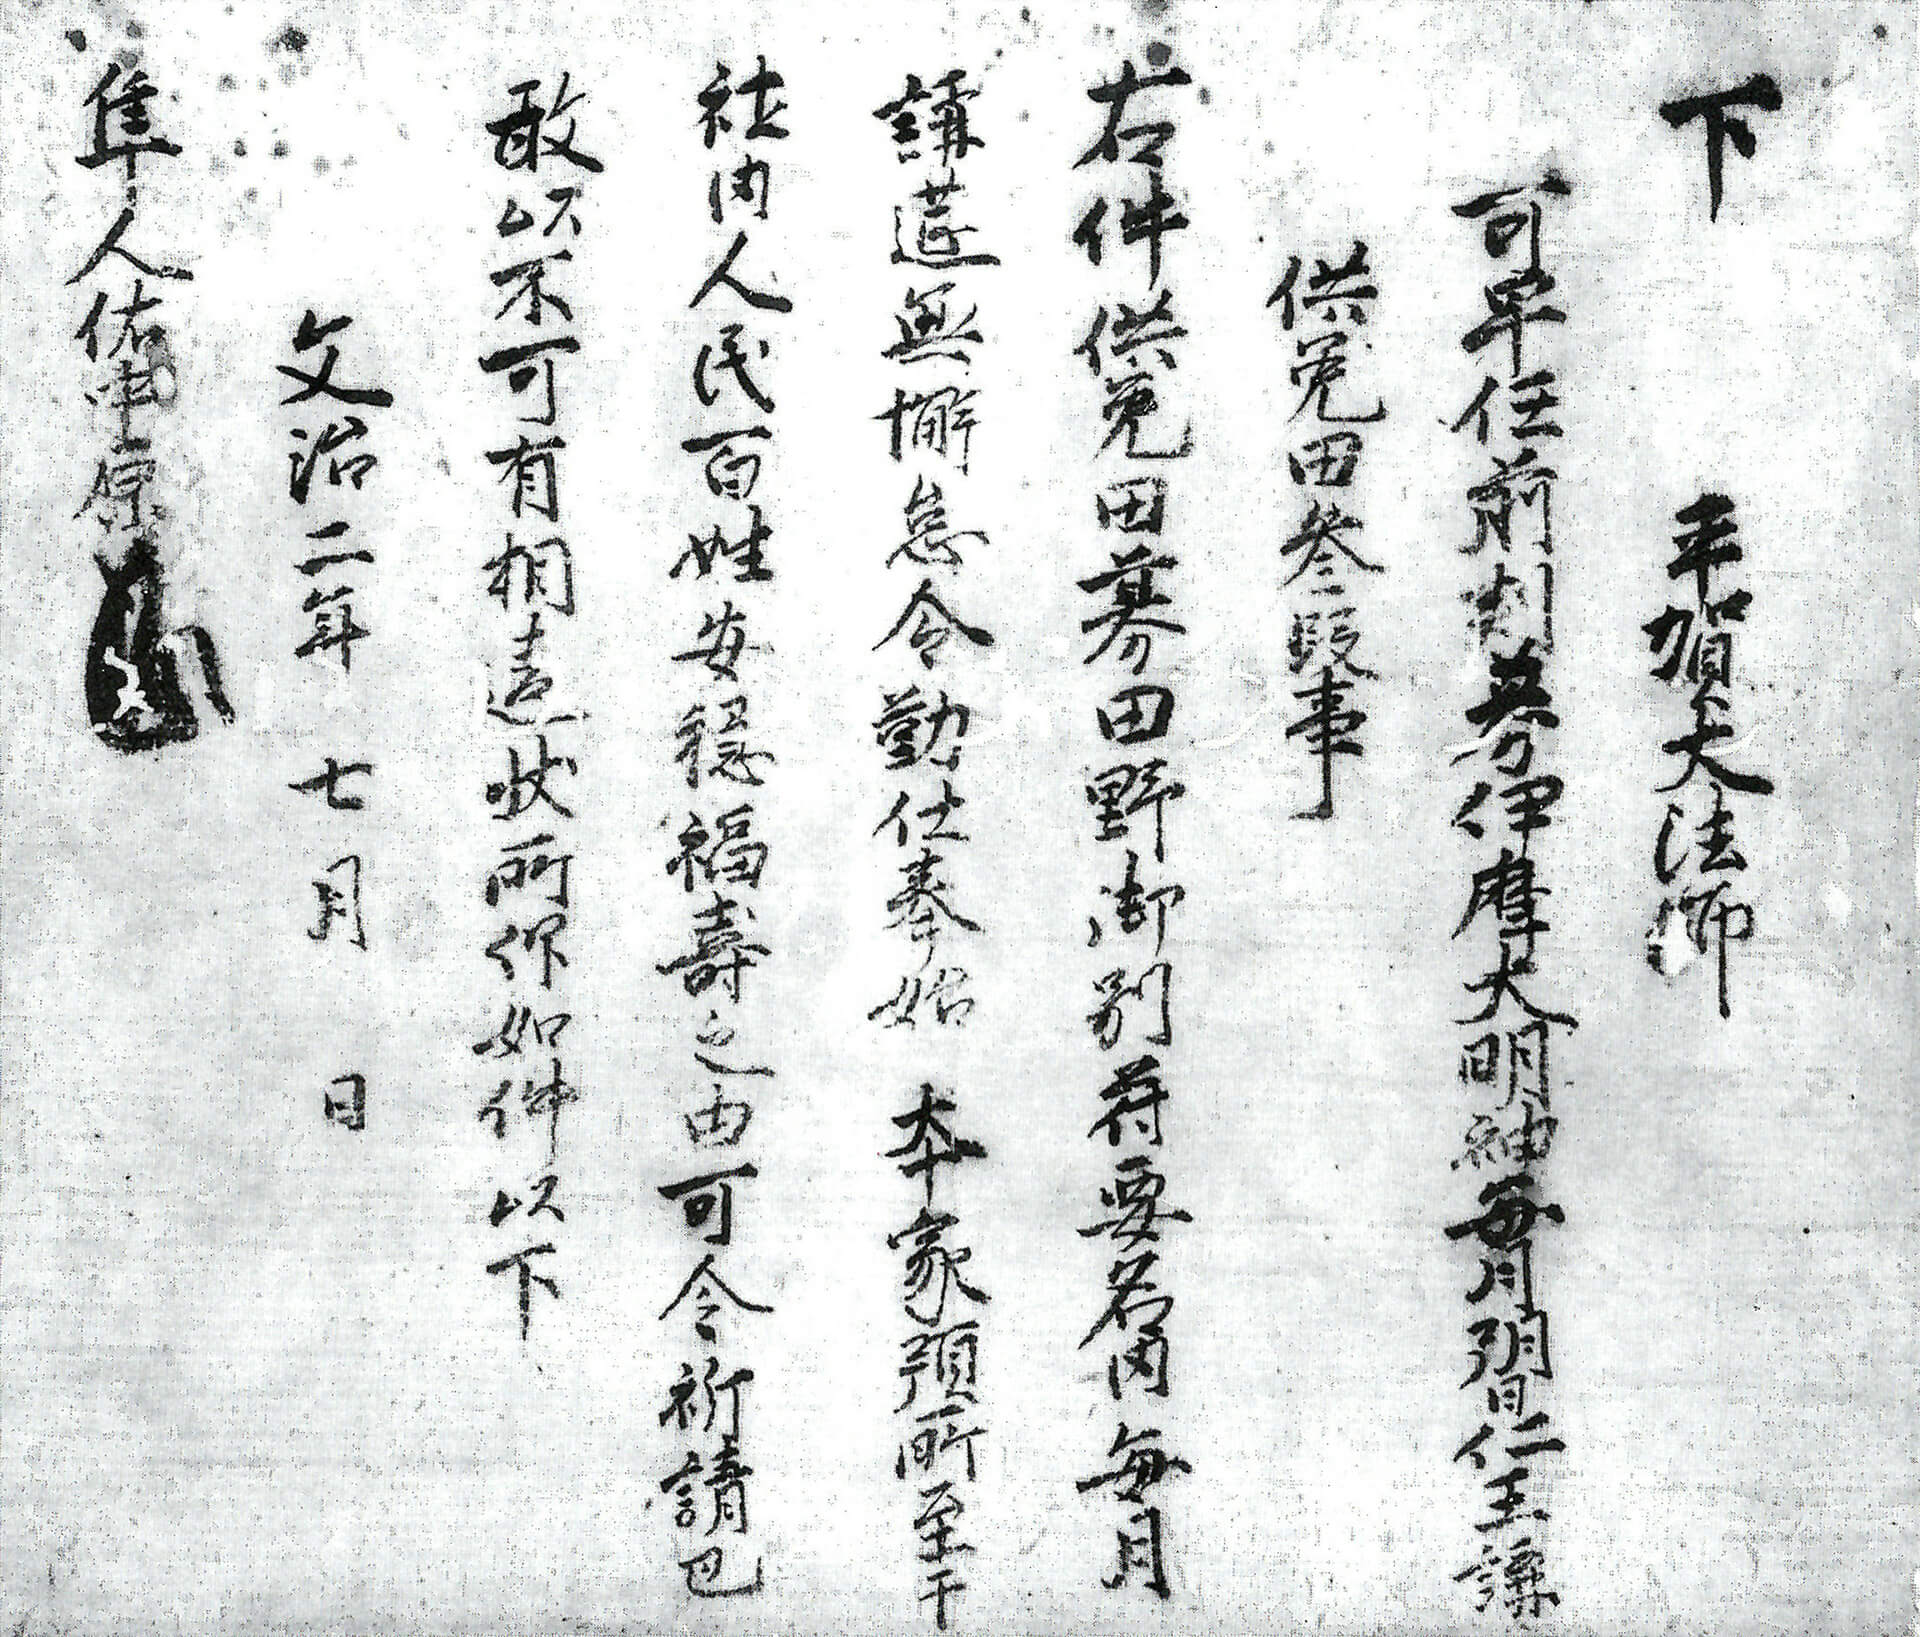 下 平賀大法師
可早任前判募伊摩大明神毎月朔日仁王講
供免田参段事
右件供免田募田野御別符要名内毎月
講莚無懈怠令勤仕奉始 本家預所至于
社内人民百姓安穏福寿之由可令祈請也
敢以不可有相違状所仰如件以下
文治二年七月 日
隼人佑中原